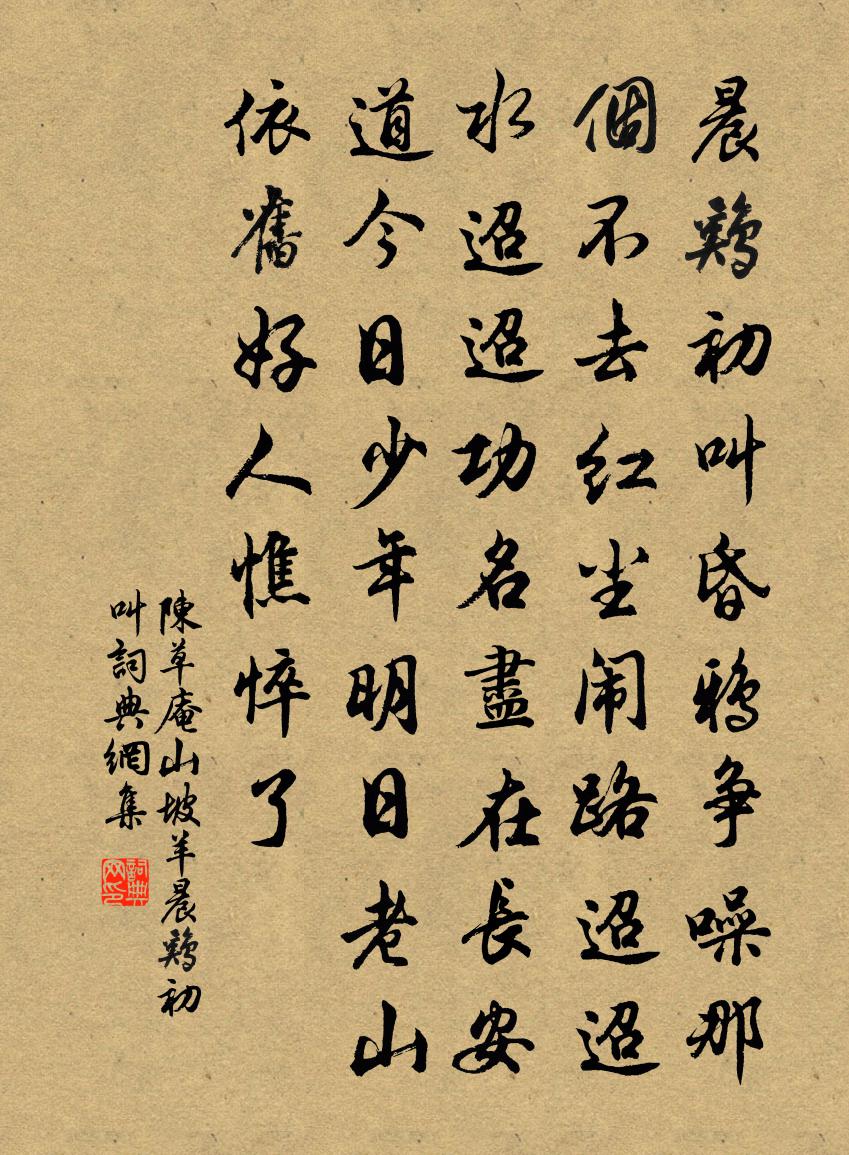 晨鷄初叫昏鴉争噪那
個不去红尘闹路迢迢
水迢迢功名盡在長安
道今日少年明日老山
依舊好人憔悴了
陳草庵山坡羊晨鷄初
叫詞典網集
詞典
网印